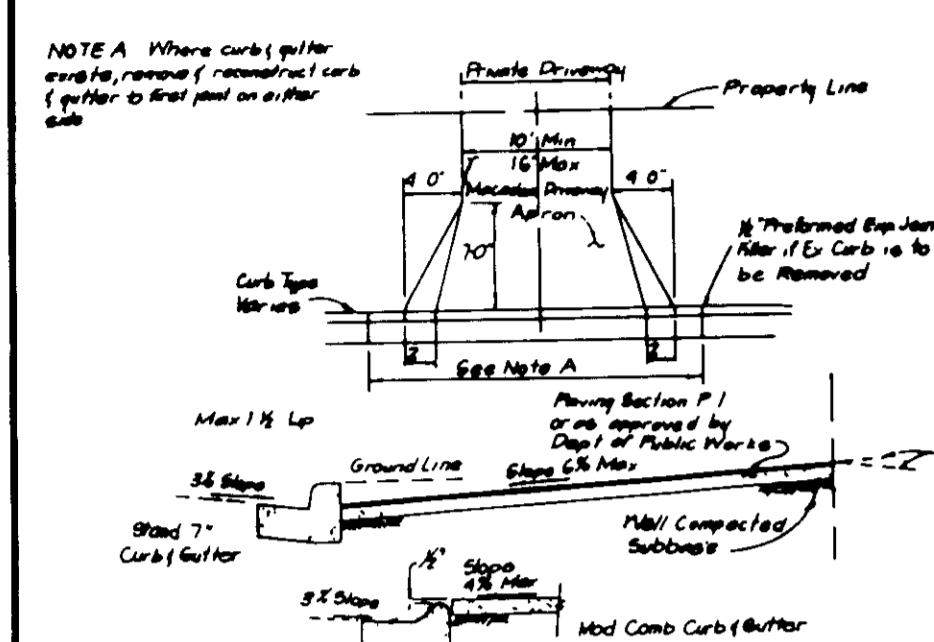 NOTE A Where curb & gutter
exists, remove & reconstruct curb
& gutter to first joint on either
side
Private Driveway
Property Line
10' Min
16' Max
4 0"
4 0"
Macadam Driveway
Apron
7 0"
1/2" Preformed Exp Join
Filler if Ex Curb is to
be Removed
Curb Type
Varies
2
2
See Note A
Max 1 1/2 Lip
Paving Section P 1
or as approved by
Dept of Public Works
Ground Line
Slope 6% Max
3% Slope
Stand 7"
Curb & Gutter
Well Compacted
Subbase
1/2"
Slope
4% Max
3% Slope
Mod Comb Curb & Gutter